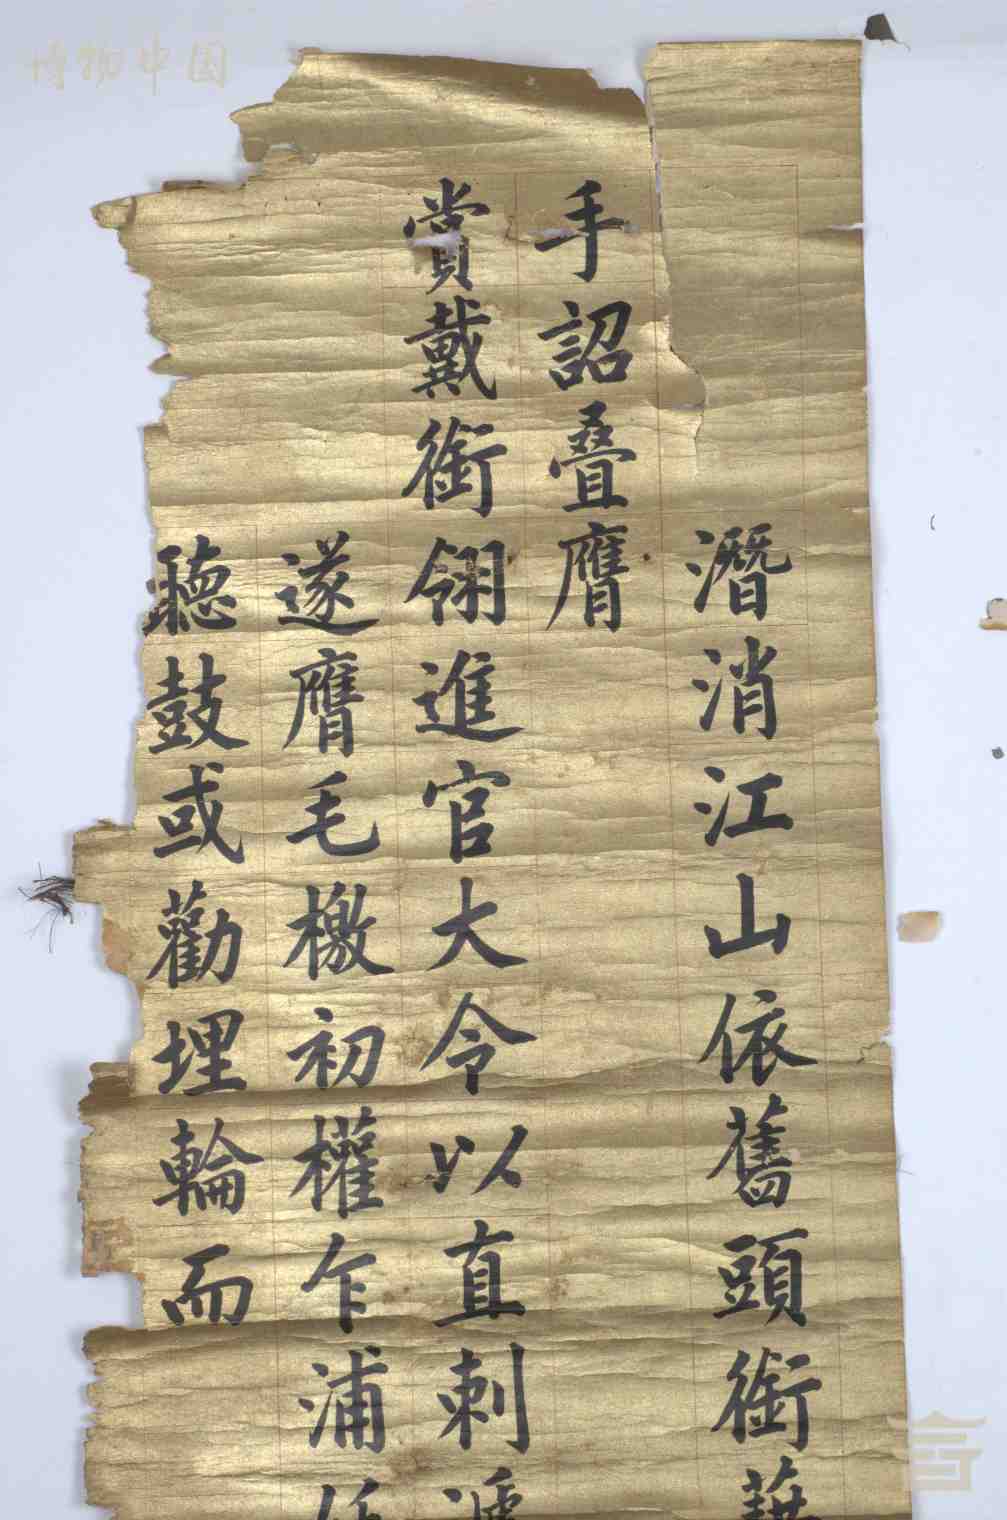 潛消江山依舊頭銜
手詔疊膺
賞戴銜翎進官大令以直刺
遂膺毛檄初權乍浦
聽鼓或勸埋輪而
博物中国